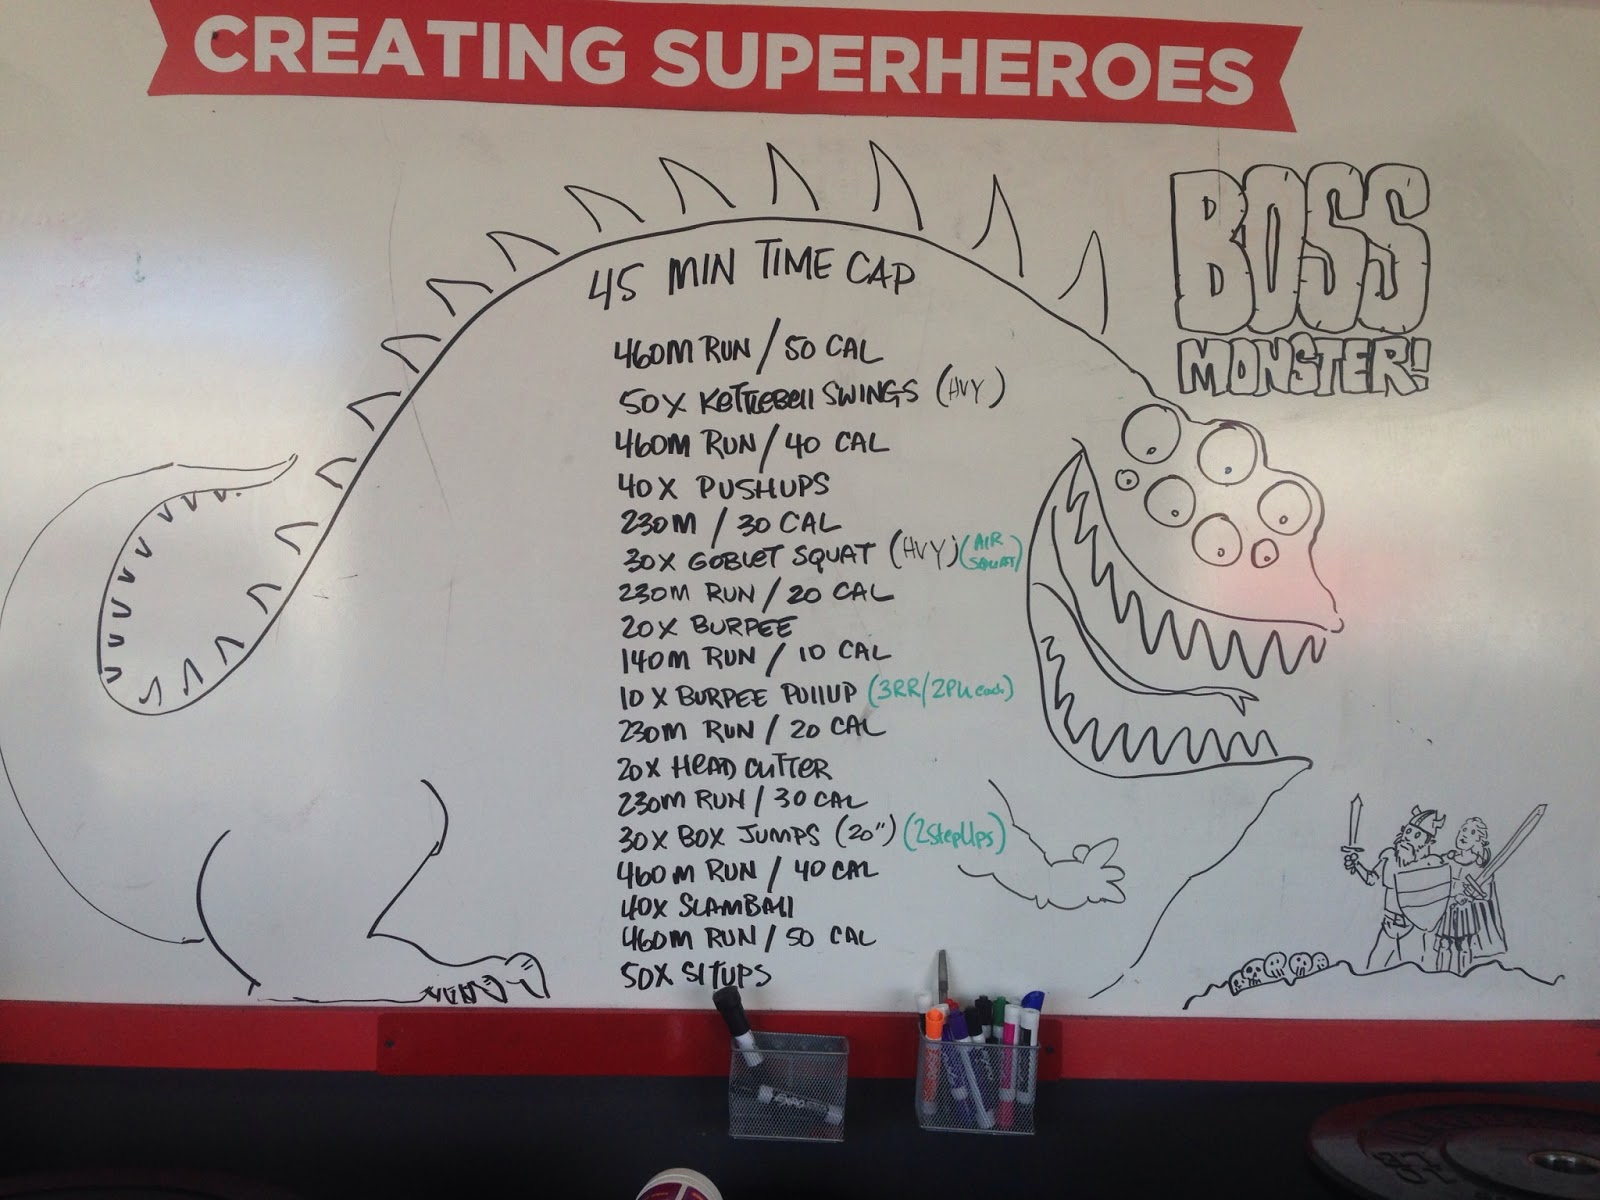 CREATING SUPERHEROES
BOSS
MONSTER!
45 MIN TIME CAP
460M RUN / 50 CAL
50X KETTLEBELL SWINGS (HVY)
460M RUN / 40 CAL
40X PUSHUPS
230M / 30 CAL
30X GOBLET SQUAT (HVY) (AIR SQUAT)
230M RUN / 20 CAL
20X BURPEE
140M RUN / 10 CAL
10X BURPEE PULLUP (3RR/2PU each)
230M RUN / 20 CAL
20X HEAD CUTTER
230M RUN / 30 CAL
30X BOX JUMPS (20") (2StepUps)
460M RUN / 40 CAL
40X SLAMBALL
460M RUN / 50 CAL
50X SITUPS
EXPO